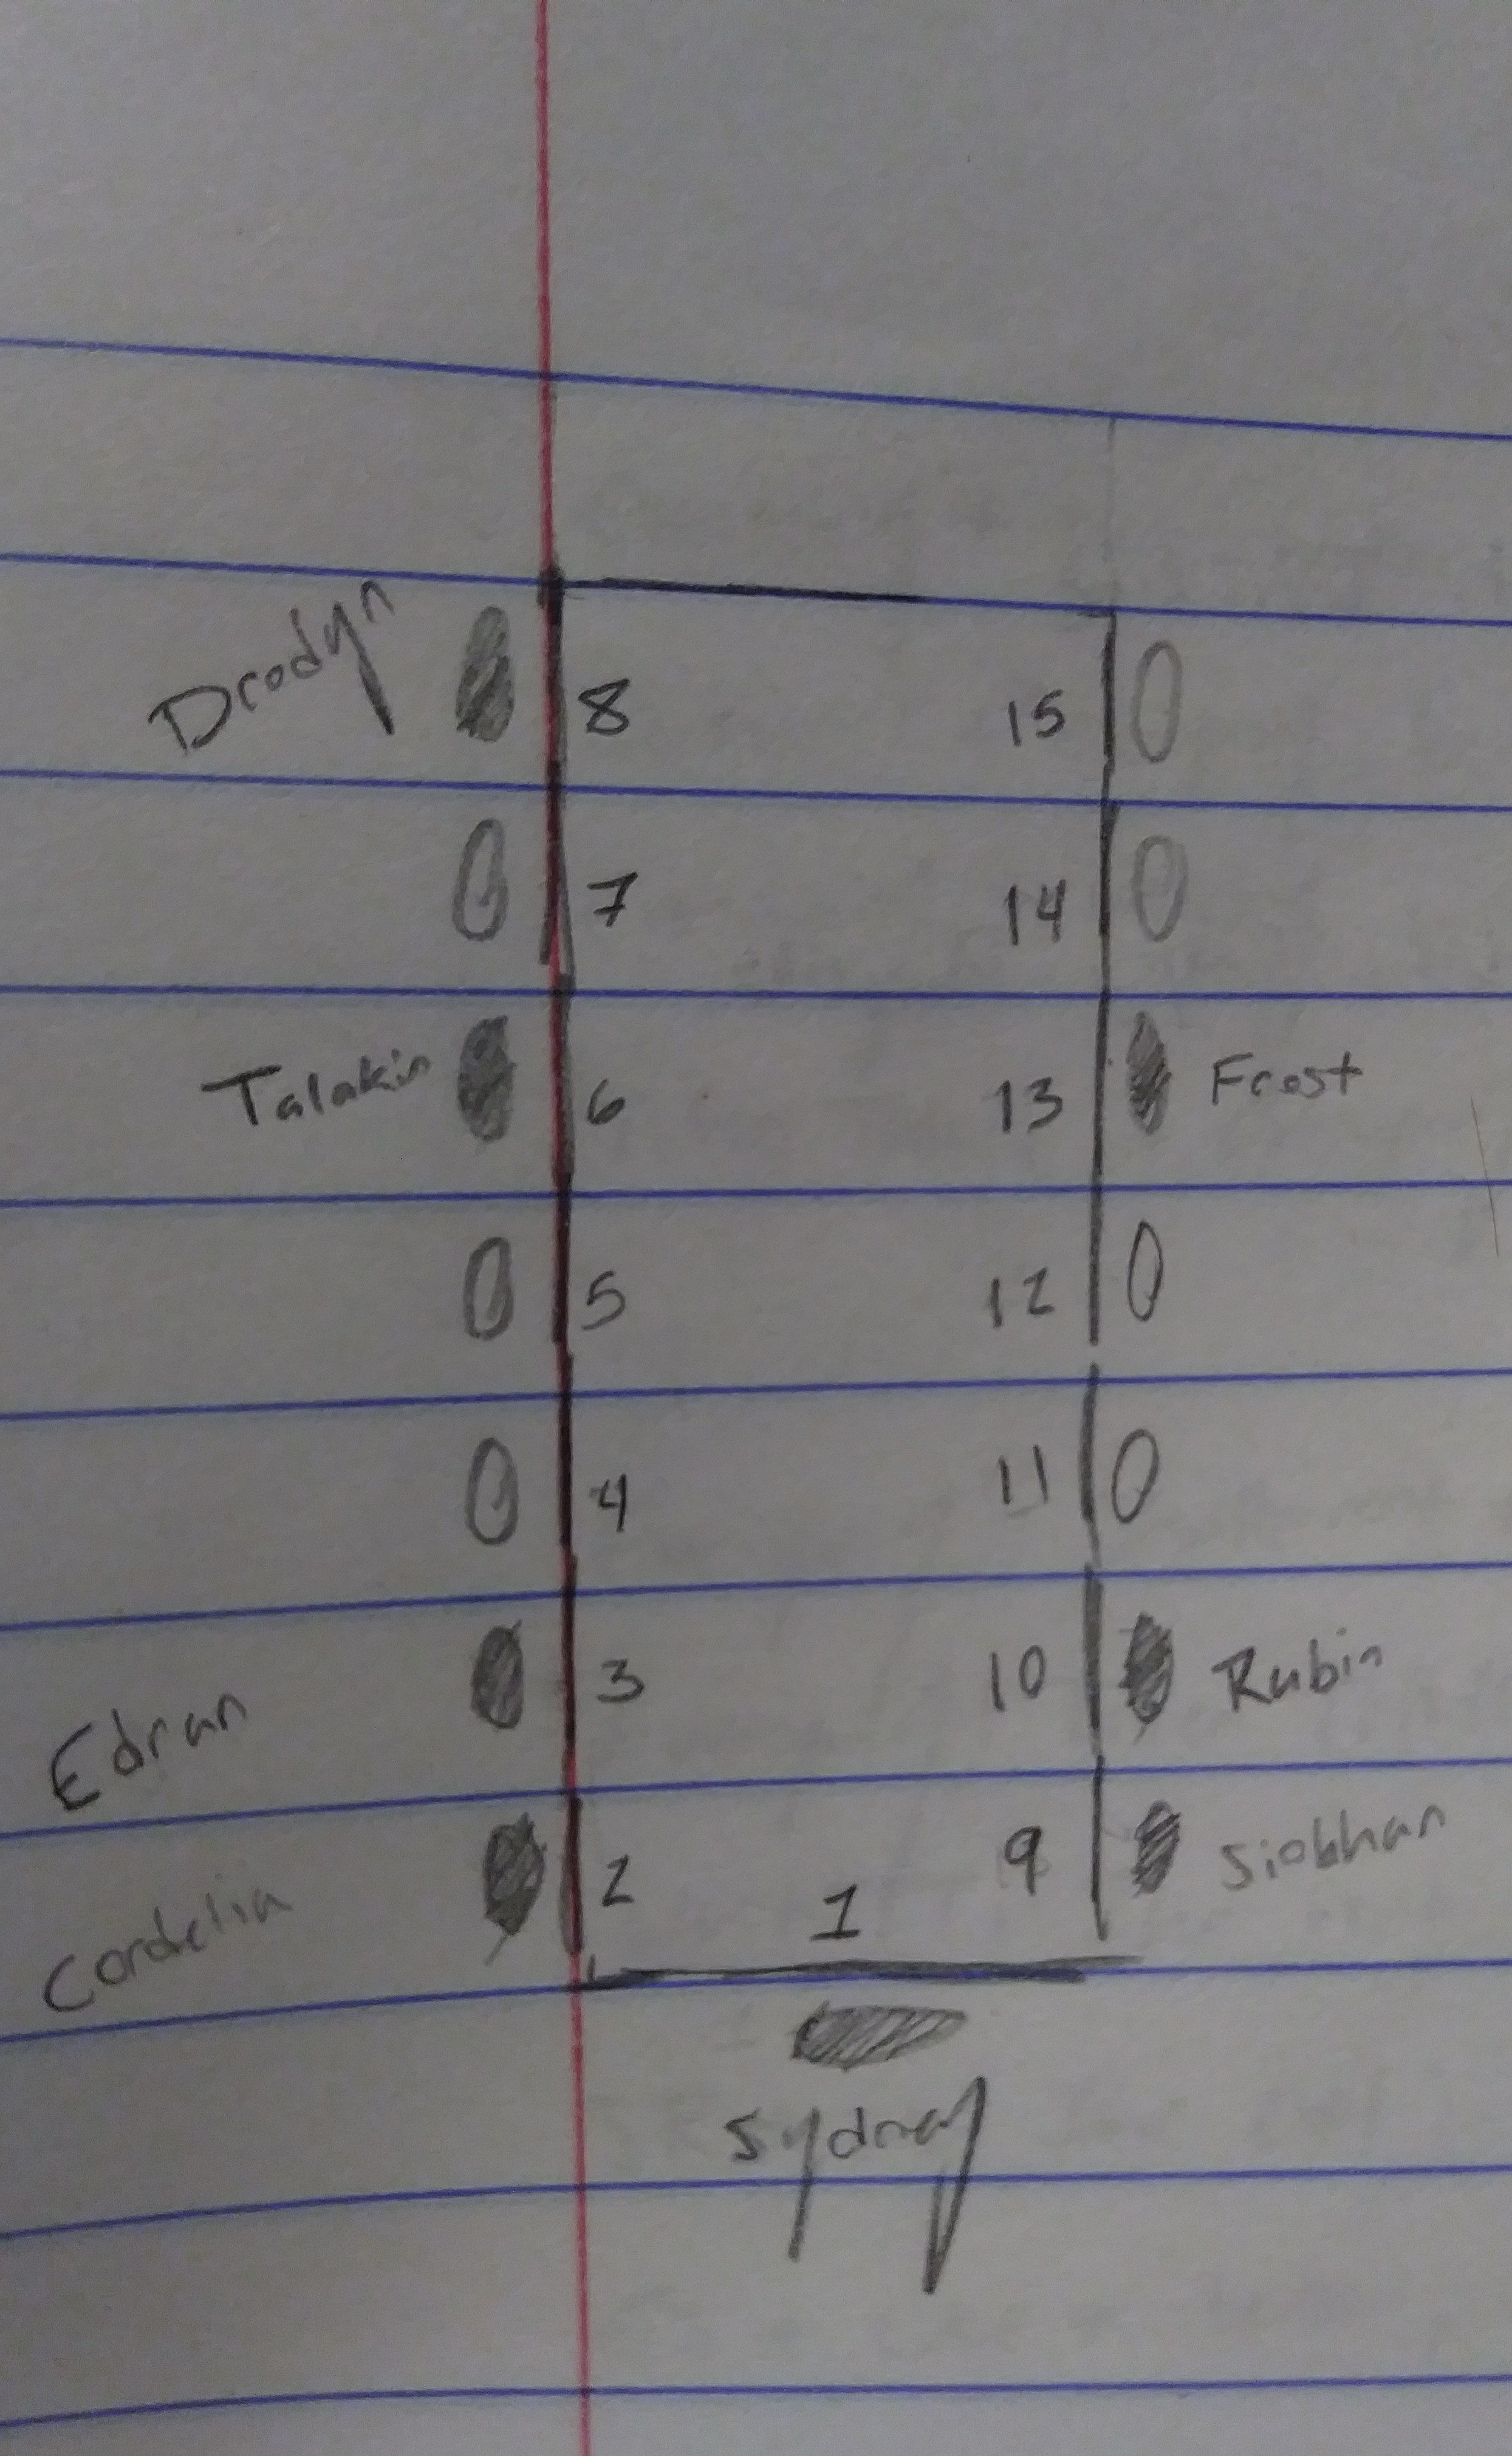 Drodyn 8 15
7 14
Talakin 6 13 Frost
5 12
4 11
Edran 3 10 Rubin
Cordelia 2 9 Siobhan
1
Sydney